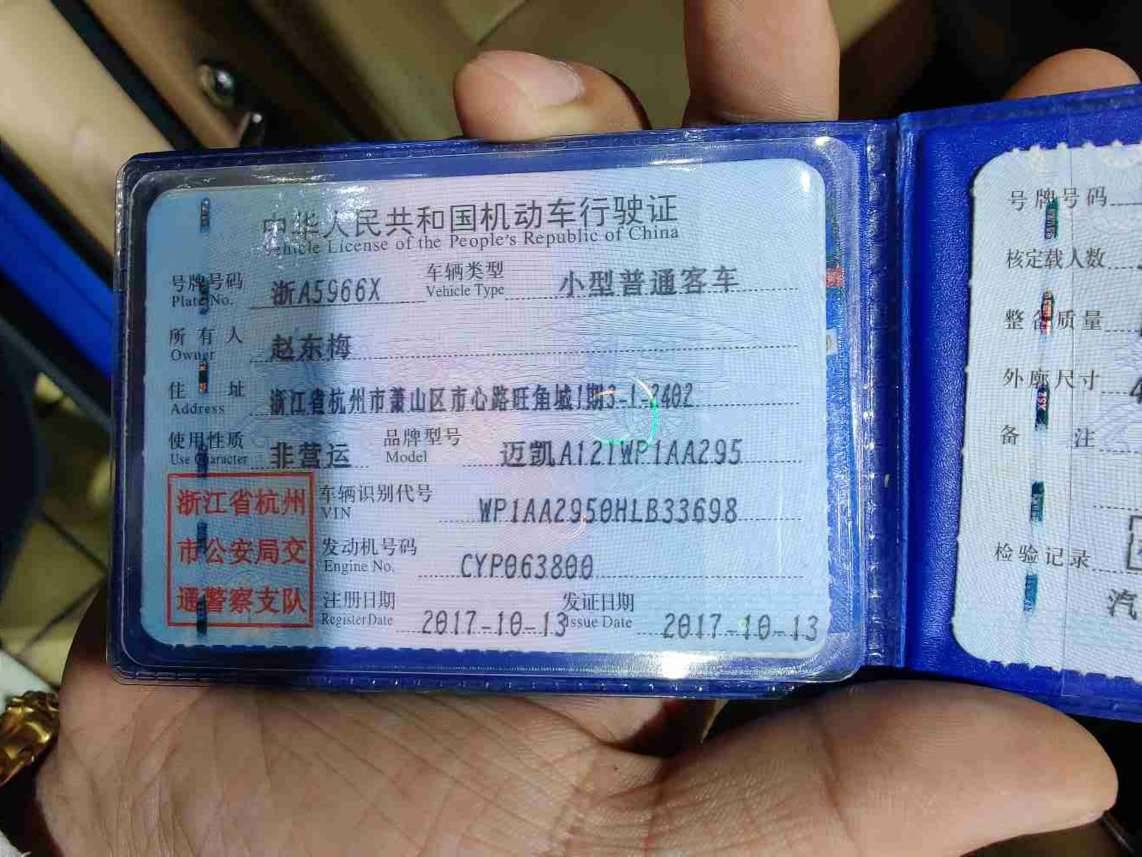 中华人民共和国机动车行驶证
Vehicle License of the People's Republic of China
号牌号码 浙A5966X 车辆类型 小型普通客车
Plate No. Vehicle Type
所有人 赵东梅
Owner
住址 浙江省杭州市萧山区市心路旺角城1期3-1-2402
Address
使用性质 非营运 品牌型号 迈凯A121WP1AA295
Use Character Model
浙江省杭州
市公安局交
通警察支队
车辆识别代号 WP1AA2950HLB33698
VIN
发动机号码 CYP063800
Engine No.
注册日期 2017-10-13 发证日期 2017-10-13
Register Date Issue Date
号牌号码
核定载人数
整备质量
外廓尺寸
备注
检验记录
汽